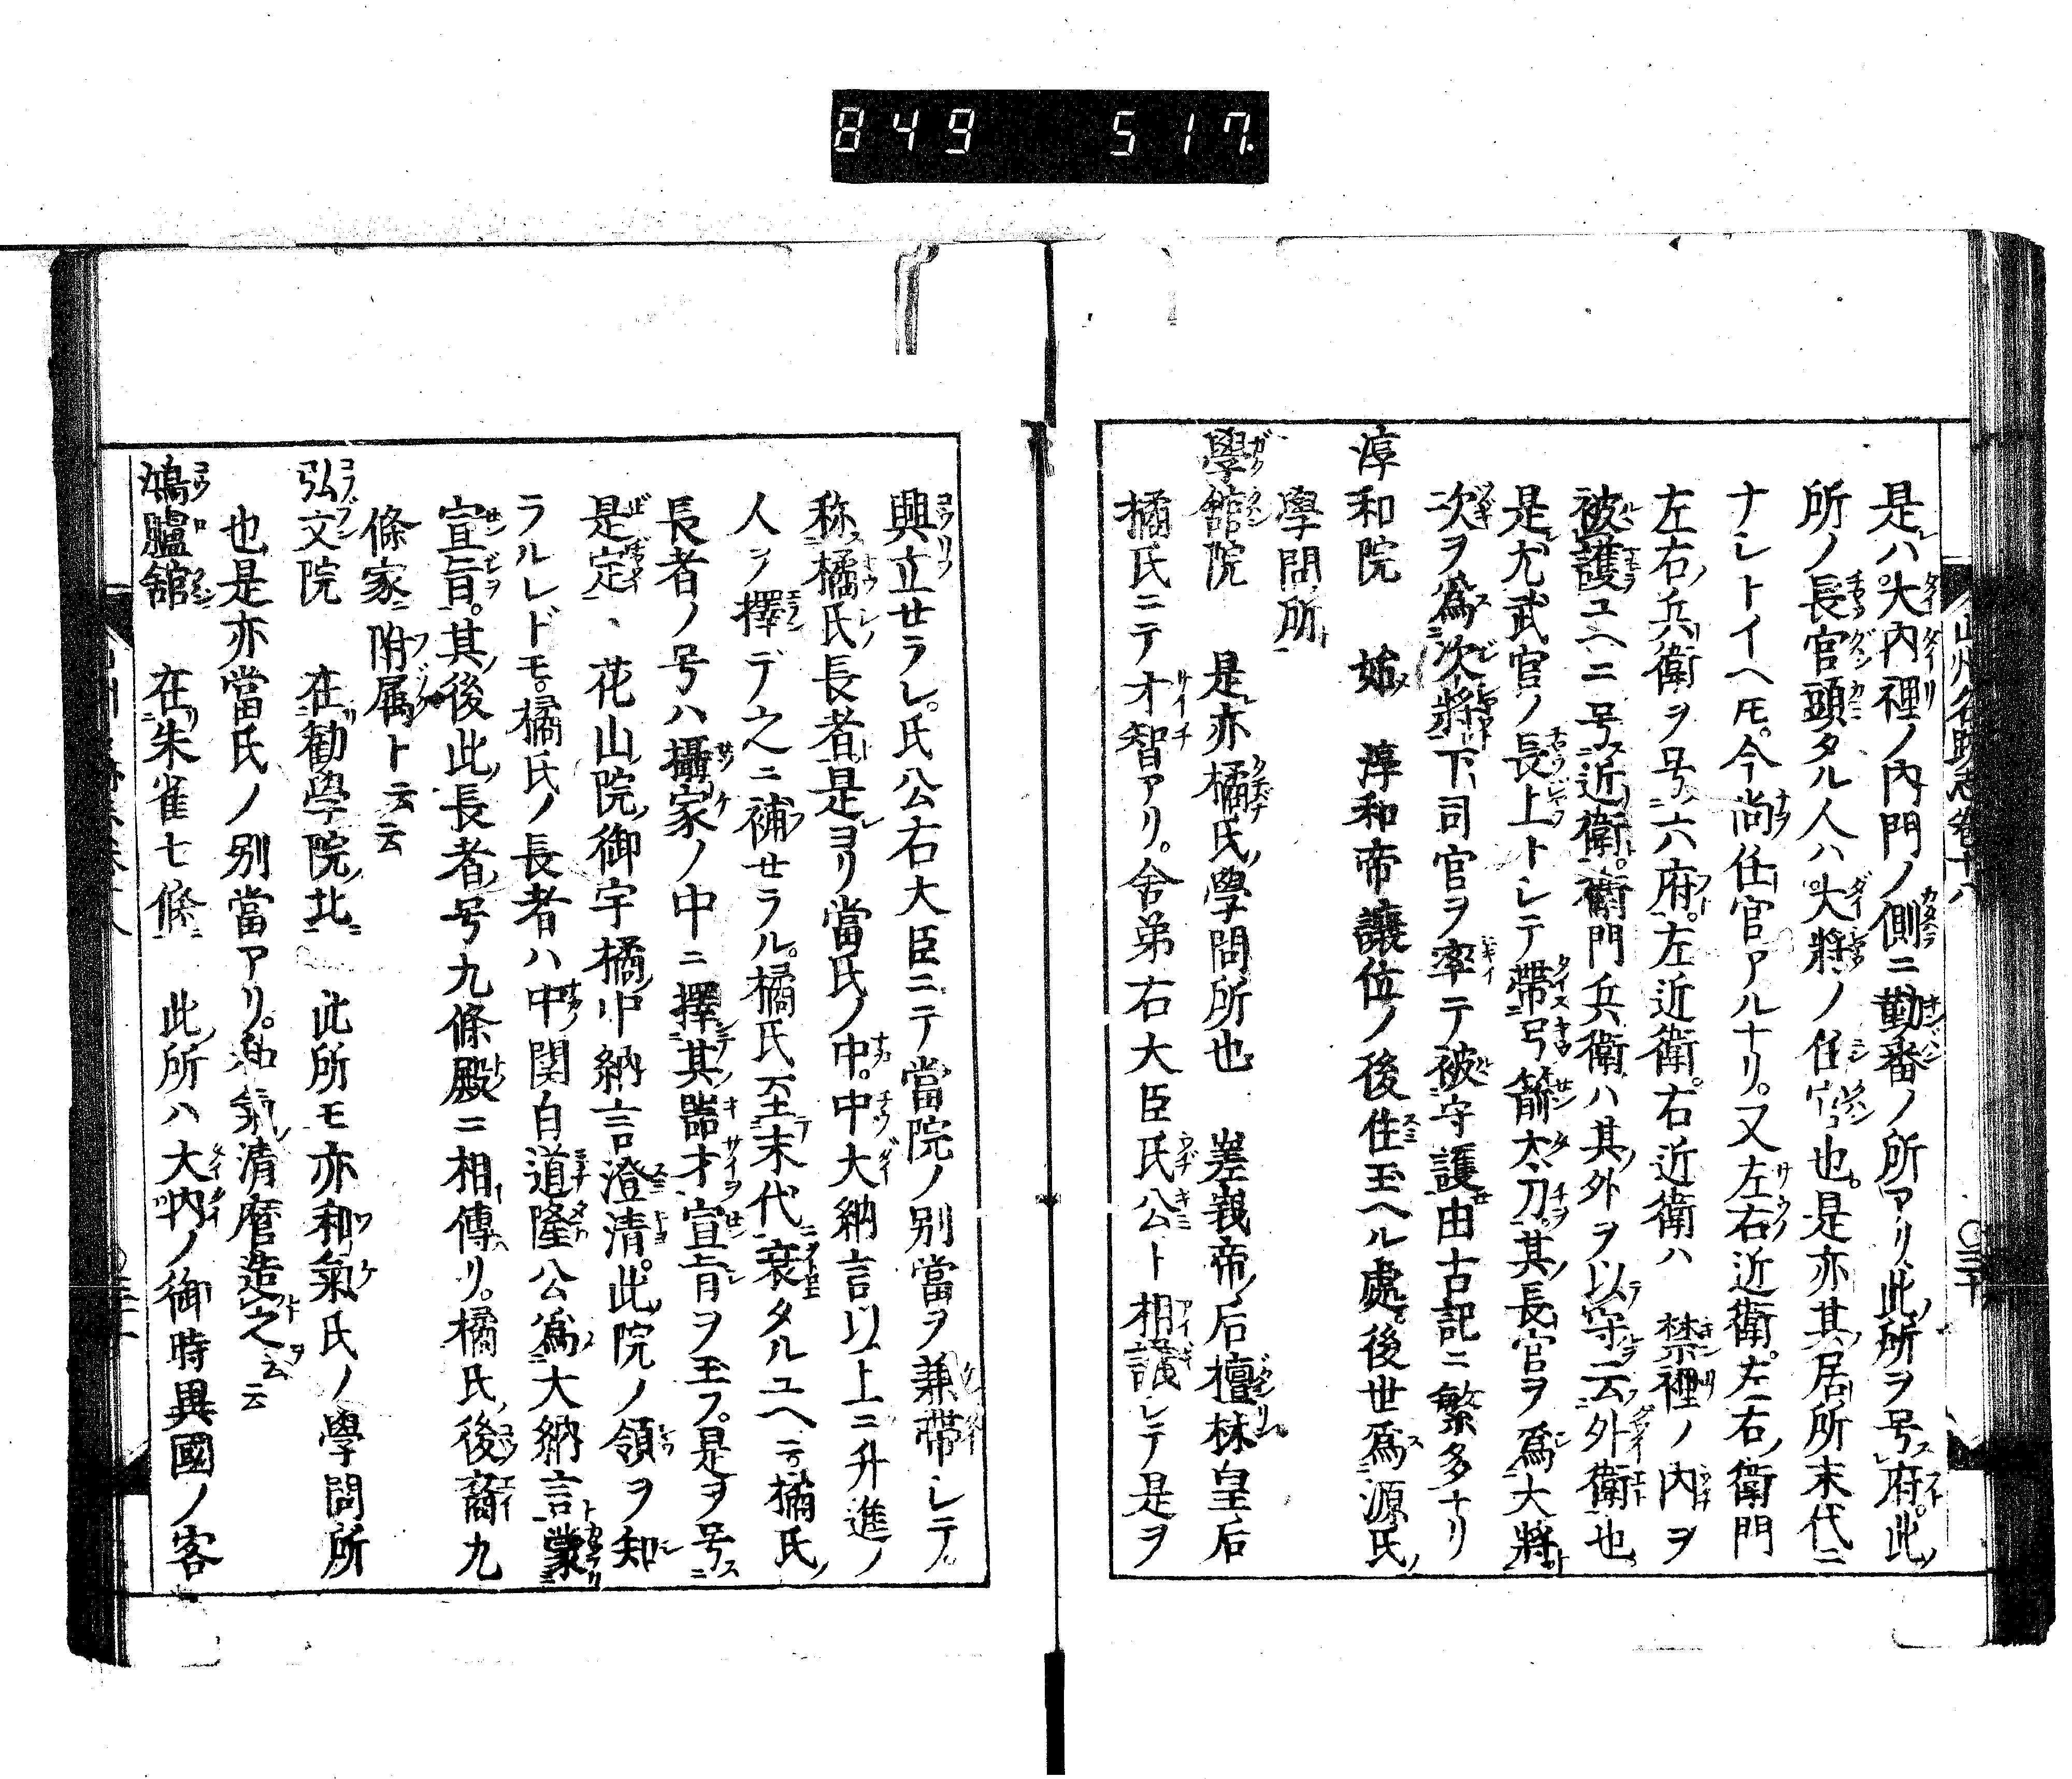 849 517.
是ハ大内裡ノ内門ノ側ニ勤番ノ所アリ此所ヲ号府此
所ノ長官頭タル人ハ大将ノ任官也是亦其居所末代ニ
ナシトイヘ𪜈今尚任官アルナリ又左右近衛左右衛門
左右兵衛ヲ号六府左近衛右近衛ハ 禁裡ノ内ヲ
被護ユヘニ号近衛衛門兵衛ハ其外ヲ以守云外衛也
是尤武官ノ長上トシテ帯弓箭太刀其長官ヲ爲大将
次ヲ爲次将下司官ヲ率テ被守護由古記ニ繁多ナリ
淳和院 始 淳和帝譲位ノ後住玉ヘル處後世爲源氏
學問所
學館院 是亦橘氏學問所也 嵯峩帝后檀林皇后
橘氏ニテ才智アリ舎弟右大臣氏公ト相議シテ是ヲ
興立セラレ氏公右大臣ニテ當院ノ別當ヲ兼帯シテ
称橘氏長者是ヨリ當氏ノ中中大納言以上ニ升進ノ
人ヲ擇デ之ニ補セラル橘氏至末代衰タルユヘニ橘氏
長者ノ号ハ攝家ノ中ニ擇其器才宣旨ヲ玉フ是ヲ号
是定 花山院御宇橘中納言澄清此院ノ領ヲ知
ラルレドモ橘氏ノ長者ハ中関白道隆公爲大納言蒙
宣旨其後此長者号九條殿ニ相傳リ橘氏後裔九
條家附属ト云云
弘文院 在勧學院北 此所モ亦和氣氏ノ學問所
也是亦當氏ノ別當アリ和氣清麿造之云云
鴻臚舘 在朱雀七條 此所ハ大内ノ御時異國ノ客
山州名跡志巻十八
○三十